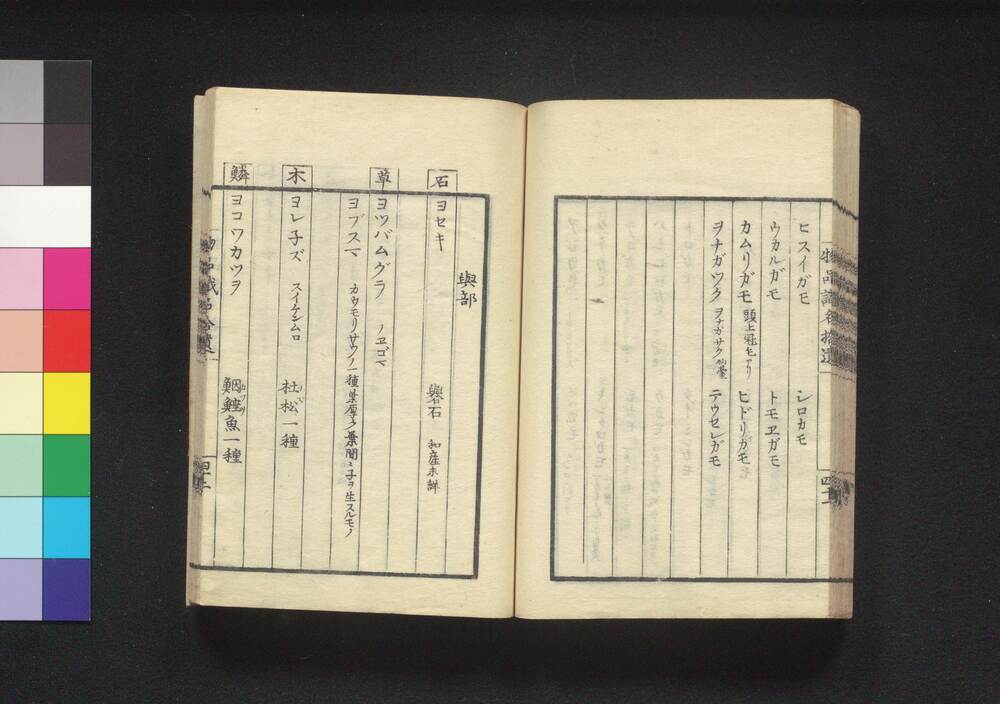 ヒスイガモ　シロカモ
ウカルガモ　トモヱガモ
カムリガモ　頭上冠毛アリ　ヒドリガモ
ヲナガツク　ヲナガサク　テウセンガモ
物品識名拾遺
四十二
與部
石　ヨセキ　礜石　和産未詳
草　ヨツバムグラ　ノヱゴマ
ヨブスマ　カウモリサウノ一種葉厚ク葉間ニ子ヲ生スルモノ
木　ヨレ子ズ　スイケンムロ　杜松一種
鱗　ヨコワカツヲ　鮰鰹魚一種
物品識名拾遺